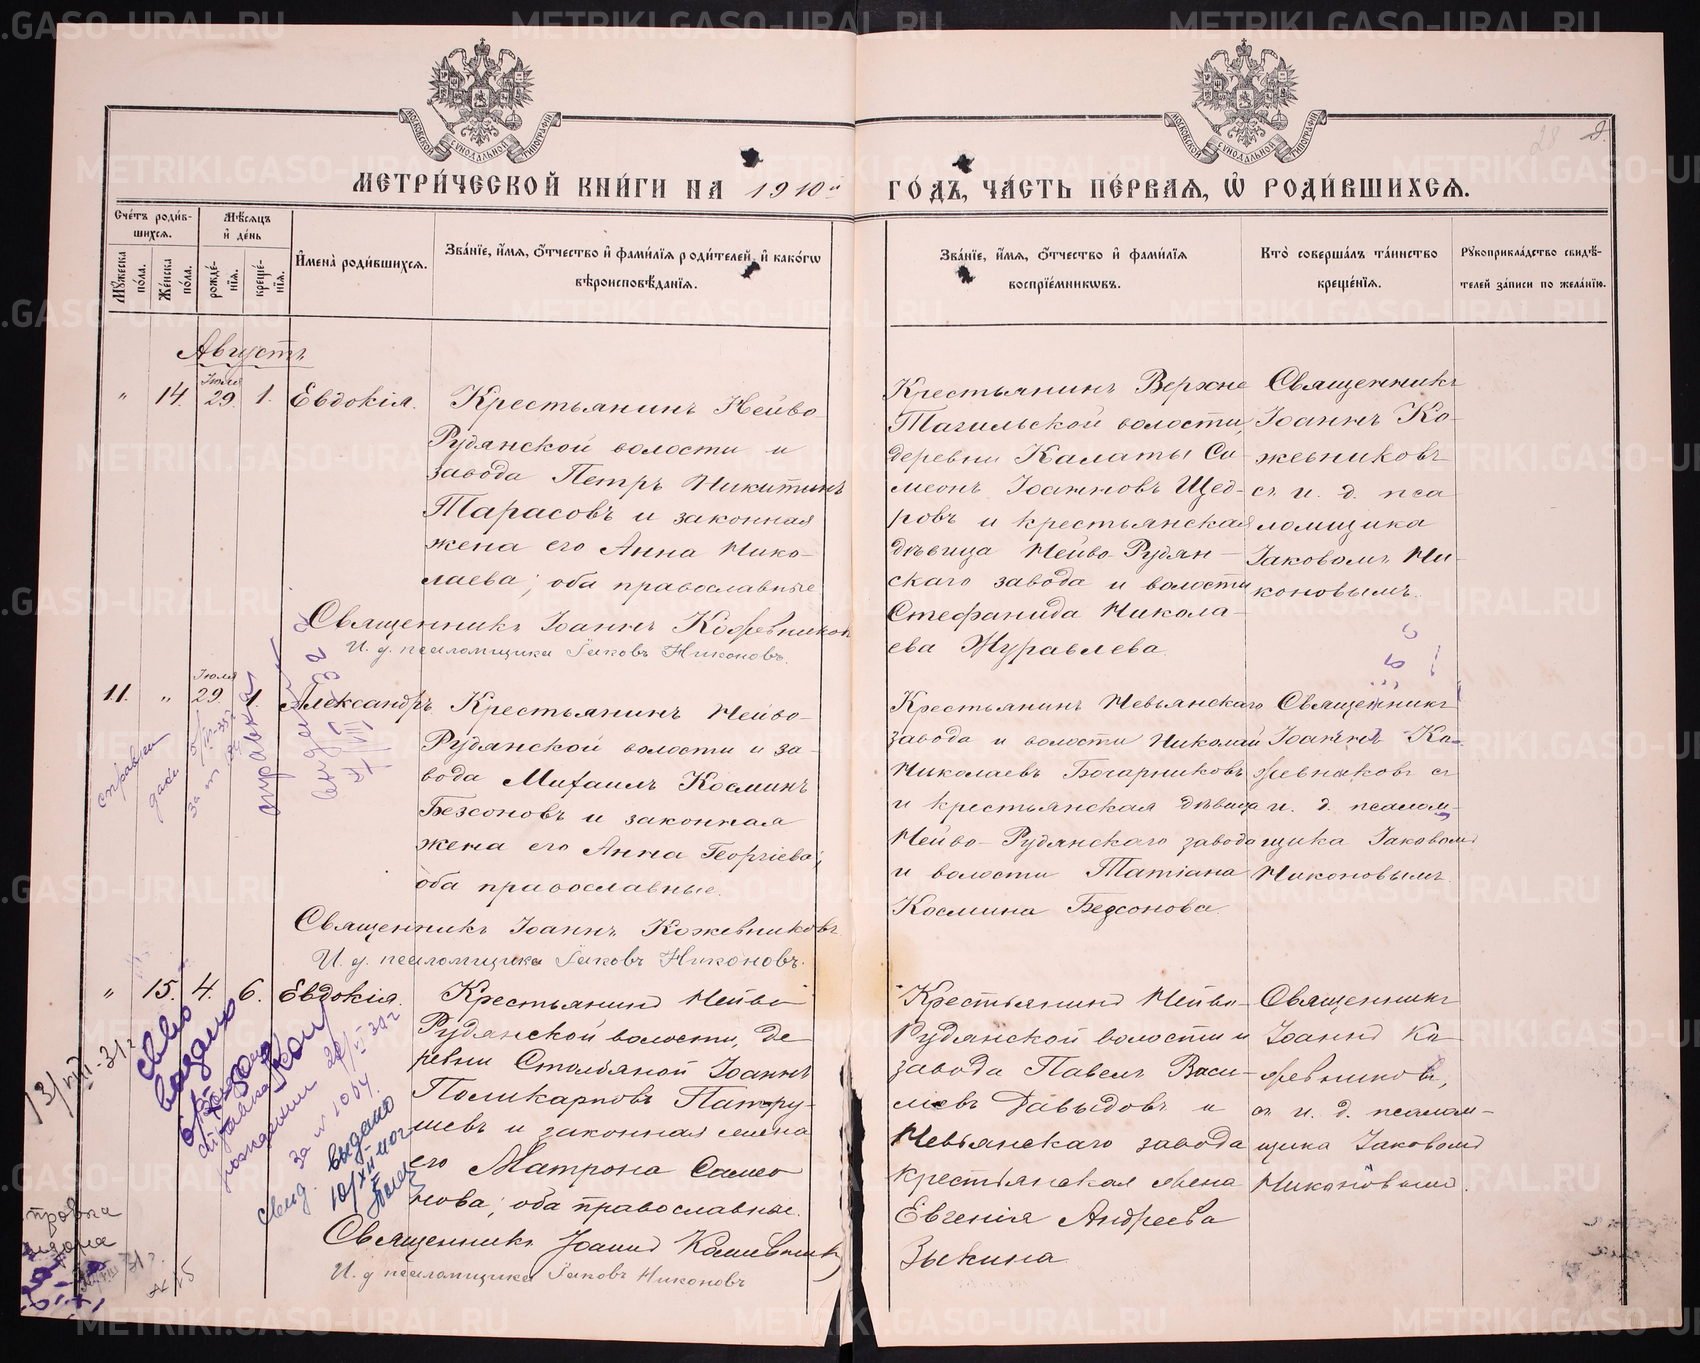 МЕТРИ́ЧЕСКОЙ КНИ́ГИ НА 1910й ГО́ДЪ, ЧА́СТЬ ПЕ́РВАЯ, Ѡ҆ РОДИ́ВШИХСЯ.
Сче́тъ роди́в-
шихся.
Мѣ́сяцъ
и҆ де́нь
Му́жеска
по́ла.
Же́нска
по́ла.
рожде́-
нїя.
креще́-
нїя.
И҆мена̀ роди́вшихся.
Зва́нїе, и҆́мя, ѻ҆́тчество и҆ фами́лїя роди́телей, и҆ како́гѡ
вѣроисповѣ́данїя.
Зва́нїе, и҆́мя, ѻ҆́тчество и҆ фами́лїя
воспрїе́мникѡвъ.
Кто̀ соверша́лъ та́инство
креще́нїя.
Рꙋкоприкла́дство свидѣ́-
телей за́писи по жела́нїю.
Августъ
" 14. Іюля 29. 1. Евдокія.
Крестьянинъ Нейво-
Рудянской волости и
завода Петръ Никитинъ
Тарасовъ и законная
жена его Анна Нико-
лаева; оба православные
Священникъ Іоаннъ Кожевников
И. д. псаломщика Іаковъ Никоновъ.
Крестьянинъ Верхне
Тагильской волости,
деревни Калаты Си-
меонъ Іоанновъ Щед-
ровъ и крестьянская
дѣвица Нейво Рудян-
скаго завода и волости
Стефанида Никола-
ева Журавлева.
Священникъ
Іоаннъ Ко-
жевниковъ
съ и. д. пса
ломщика
Іаковомъ Ни-
коновымъ.
11. " Іюля 29. 1. Александръ
Крестьянинъ Нейво-
Рудянской волости и за-
вода Михаилъ Косминъ
Безсоновъ и законная
жена его Анна Георгіева;
оба православные.
Священникъ Іоаннъ Кожевниковъ
И. д. псаломщика Іаковъ Никоновъ.
Крестьянинъ Невьянскаго
завода и волости Николай
Николаевъ Богарниковъ
и крестьянская дѣвица
Нейво-Рудянскаго завода
и волости Татіана
Космина Безсонова
Священникъ
Іоаннъ Ко-
жевниковъ съ
и. д. псалом-
щика Іаковомъ
Никоновымъ.
" 15. 4. 6. Евдокія.
Крестьянинъ Нейво
Рудянской волости, де
ревни Столбяной Іоаннъ
Поликарповъ Патру-
шевъ и законная жена
его Матрона Симео
нова; оба православные.
Священникъ Іоаннъ Кожевник
И. д псаломщика Іаковъ Никоновъ
Крестьянинъ Нейво-
Рудянской волости и
завода Павелъ Васи-
льевъ Давыдовъ и
Невьянскаго завода
крестьянская жена
Евгенія Андреева
Зыкина
Священникъ
Іоаннъ Ко
жевниковъ,
съ и. д. псалом-
щика Іаковомъ
Никоновымъ.
справки
13/VIII-31г
выдано
10/XII
METRIKI.GASO-URAL.RU